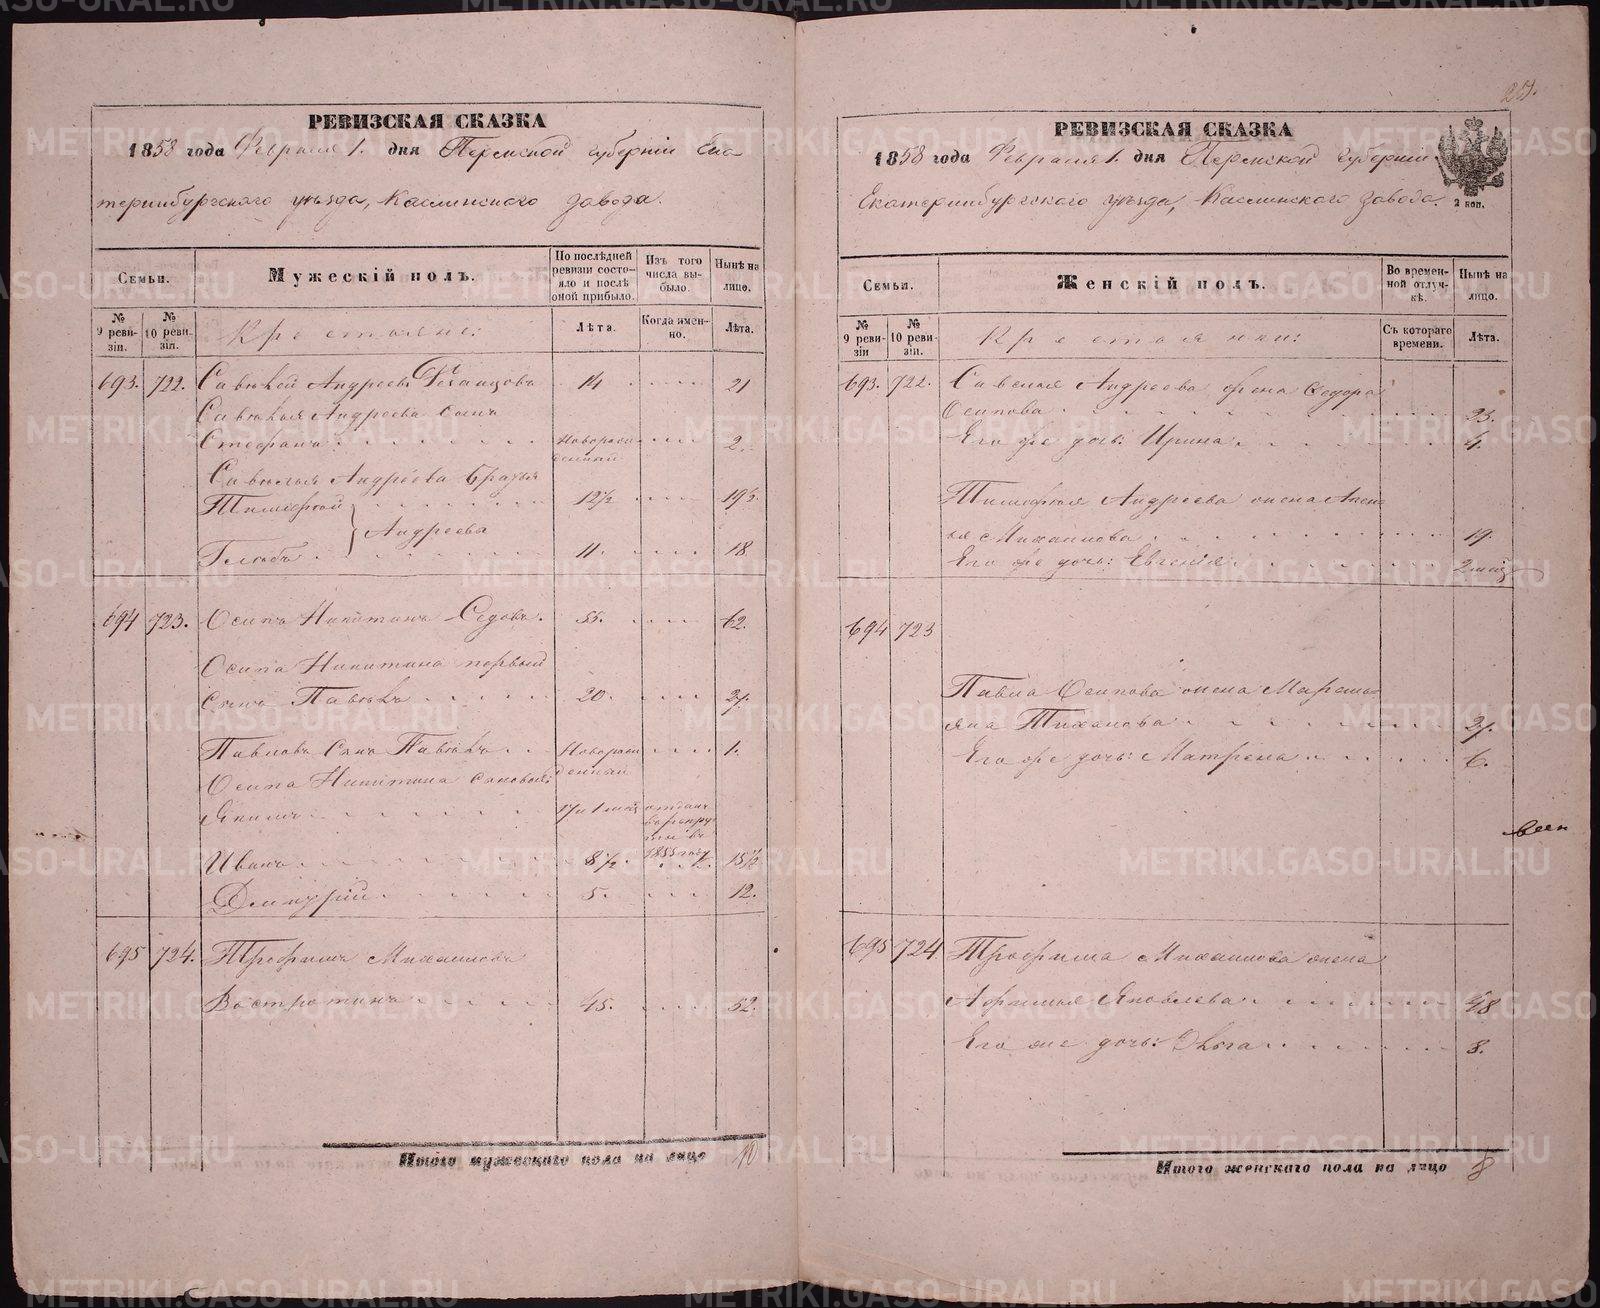 РЕВИЗСКАЯ СКАЗКА
1858 года Февраля 1. дня Пермской губернiи Ека
теринбургскаго уѣзда, Каслинскаго завода.
Семьи.
Мужескiй полъ.
По послѣдней ревизiи состояло и послѣ оной прибыло.
Изъ того числа выбыло.
Нынѣ на лицо.
№ 9 ревизiи.
№ 10 ревизiи.
Крестьяне:
Лѣта.
Когда именно.
Лѣта.
693. 722. Савелiй Андреевъ 14 21
Савелья Андреева сынъ
Степанъ Новорож 2.
денный
Савелья Андреева братья
Тимофей 12½ 19½
Андреевы
Глѣбъ 11. 18
694 723. Осипъ Никитинъ Седовъ. 55. 62.
Осипа Никитина первый
сынъ Павелъ 20. 27.
Павловъ сынъ Павелъ Новорож 1.
денный
Осипа Никитина сыновья:
Якимъ 17 и 1 мѣс отданъ
в рекру
ты въ
1855 году
Иванъ 8½ 15½
Дмитрiй 5. 12.
695 724. Трофимъ Михайловъ
Востротинъ 45. 52.
Итого мужескаго пола на лицо 10
РЕВИЗСКАЯ СКАЗКА
1858 года Февраля 1. дня Пермской губернiи
Екатеринбургскаго уѣзда, Каслинскаго завода.
2 коп.
Семьи.
Женскiй полъ.
Во временной отлучкѣ.
Нынѣ на лицо.
№ 9 ревизiи
№ 10 ревизiи.
Крестьянки:
Съ котораго времени.
Лѣта.
693. 722. Савелья Андреева жена Федора
Осипова 23.
Его же дочь: Ирина 4.
Тимофея Андреева жена
Михайлова 19.
Его же дочь: Евгенiя 2 мѣс
694 723
Павла Осипова жена Маремь
яна Тиханова 27.
Его же дочь: Матрена 6.
695 724 Трофима Михайлова жена
Афимья Яковлева 48
Его же дочь: Ольга 8.
Итого женскаго пола на лицо 8
METRIKI.GASO-URAL.RU